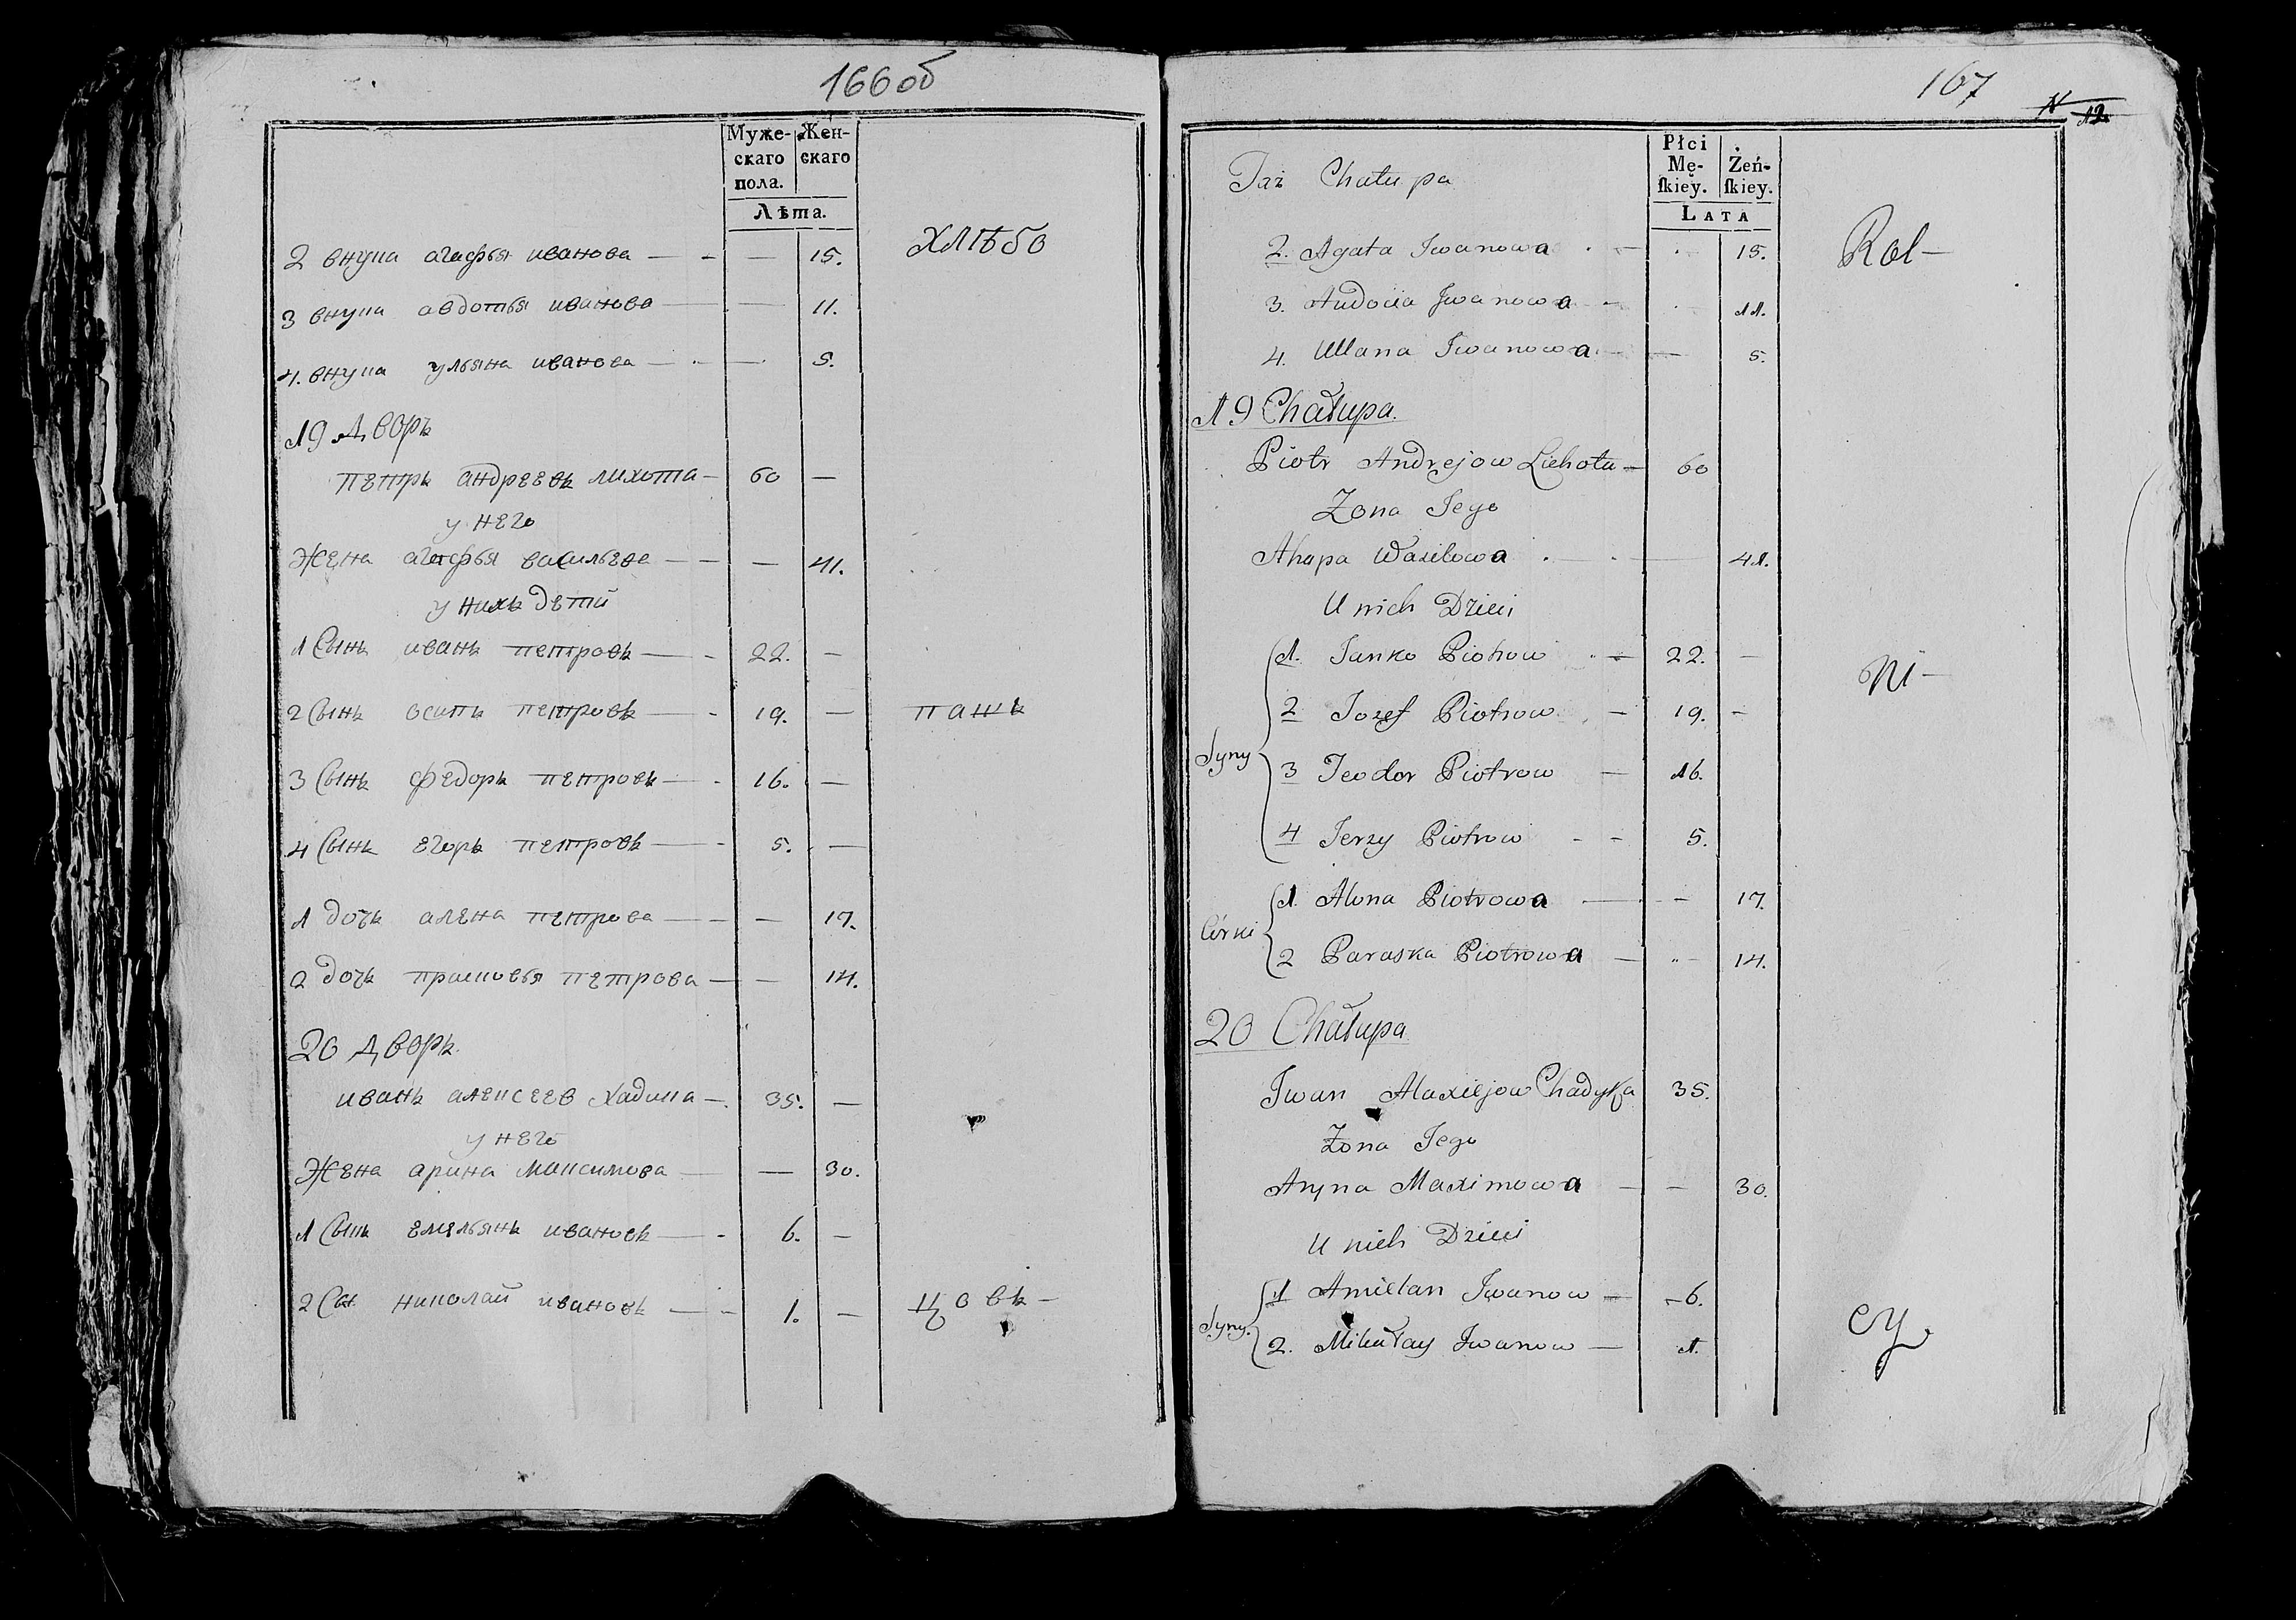 166об
Муже-
скаго
пола.
Жен-
скаго
Лѣта.
2 внука агафья иванова — — — 15.
ХЛѢБО
3 внука авдотья иванова — — 11.
4. внука ульяна иванова — — — 5.
19 Дворъ
петръ андреевъ лихота — 60 —
у него
Жена агафья васильева — — — 41.
у нихъ дети
1 Сынъ иванъ петровъ — - 22. —
2 Сынъ осипъ петровъ — - 19. —
пашъ
3 Сынъ федоръ петровъ — - 16. —
4 Сынъ егоръ петровъ — - 5. —
1 дочь алена петрова — — — 17.
2 дочь прасковья петрова — — 14.
20 Дворъ
иванъ алексеев Хадика — 35. —
у него
Жена арина максимова — — 30.
1 Сынъ емельянъ ивановъ — - 6. —
2 Сын николай ивановъ — - 1. —
цовъ —
167
N 12
Taż Chałupa
Płci
Mę-
ſkiey.
Żeń-
ſkiey.
LATA
2. Agata Iwanowa — 15.
Rol —
3. Audocia Iwanowa — 11.
4. Ullana Iwanowa — — 5.
19 Chałupa.
Piotr Andrejow Lichota — 60
Zona Jego
Ahapa Wasilowa — — 41.
U nich Dzieci
Syny
1. Janko Piotrow — 22. —
ni —
2 Jozef Piotrow — 19. —
3 Teodor Piotrow — 16.
4 Jerzy Piotrow - - 5.
Córki
1. Alona Piotrowa — — 17.
2 Paraska Piotrowa — 14.
20 Chałupa
Iwan Alaxiejow Chadyka 35.
Zona Jego
Aryna Maximowa — — 30.
U nich Dzieci
Syny.
1 Amillan Iwanow — 6.
2. Mikułay Iwanow — 1.
cy